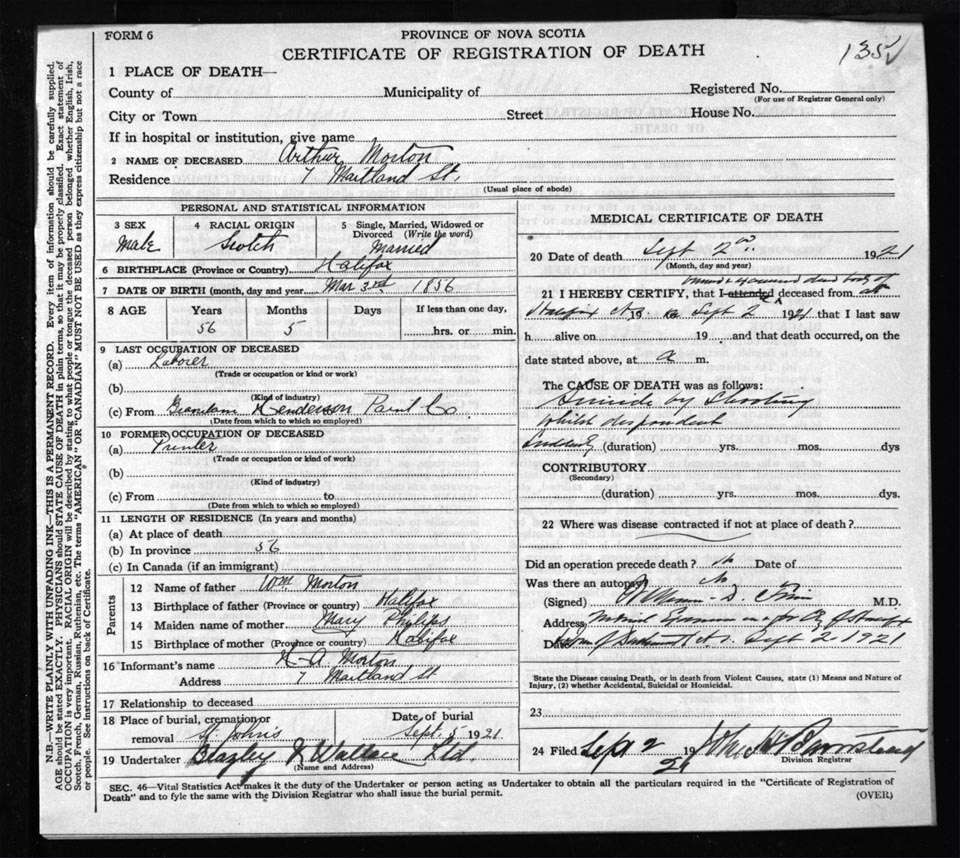 FORM 6
PROVINCE OF NOVA SCOTIA
CERTIFICATE OF REGISTRATION OF DEATH
135
1 PLACE OF DEATH—
County of Municipality of Registered No.
(For use of Registrar General only)
City or Town Street House No.
If in hospital or institution, give name
2 NAME OF DECEASED Arthur Morton
Residence 7 Maitland St.
(Usual place of abode)
PERSONAL AND STATISTICAL INFORMATION
3 SEX 4 RACIAL ORIGIN 5 Single, Married, Widowed or Divorced (Write the word)
Male Scotch Married
6 BIRTHPLACE (Province or Country) Halifax
7 DATE OF BIRTH (month, day and year) Mar 3rd 1856
8 AGE Years Months Days If less than one day,
56 5 hrs. or min.
9 LAST OCCUPATION OF DECEASED
(a) Laborer
(Trade or occupation or kind or work)
(b)
(Kind of industry)
(c) From Brandram Henderson Paint Co.
(Date from which to which so employed)
10 FORMER OCCUPATION OF DECEASED
(a) Printer
(Trade or occupation or kind of work)
(b)
(Kind of industry)
(c) From to
(Date from which to which so employed)
11 LENGTH OF RESIDENCE (In years and months)
(a) At place of death
(b) In province 56
(c) In Canada (if an immigrant)
Parents
12 Name of father Wm Morton
13 Birthplace of father (Province or country) Halifax
14 Maiden name of mother Mary Phylips
15 Birthplace of mother (Province or country) Halifax
16 Informant's name A Morton
Address 7 Maitland St
17 Relationship to deceased
18 Place of burial, cremation or removal St. Johns Date of burial Sept. 5 1921
19 Undertaker Wallace Ltd.
(Name and Address)
MEDICAL CERTIFICATE OF DEATH
20 Date of death Sept 2nd 1921
(Month, day and year)
examined dead body of
21 I HEREBY CERTIFY, that I attended deceased from at
Halifax 19 Sept 2 1921 that I last saw
h alive on 19 and that death occurred, on the
date stated above, at a m.
The CAUSE OF DEATH was as follows:
Suicide by Shooting
whilst despondent
Suddenly (duration) yrs. mos. dys
CONTRIBUTORY
(Secondary)
(duration) yrs. mos. dys.
22 Where was disease contracted if not at place of death?
Did an operation precede death? No Date of
Was there an autopsy No
(Signed) M.D.
Address Medical
Date Sept 2 1921
State the Disease causing Death, or in death from Violent Causes, state (1) Means and Nature of
Injury, (2) whether Accidental, Suicidal or Homicidal.
23
24 Filed Sept 2 19 21
Division Registrar
SEC. 46—Vital Statistics Act makes it the duty of the Undertaker or person acting as Undertaker to obtain all the particulars required in the "Certificate of Registration of
Death" and to fyle the same with the Division Registrar who shall issue the burial permit. (OVER)
N.B.—WRITE PLAINLY WITH UNFADING INK—THIS IS A PERMANENT RECORD. Every item of information should be carefully supplied.
AGE should be stated EXACTLY. PHYSICIANS should STATE CAUSE OF DEATH in plain terms, so that it may be properly classified. Exact statement of
OCCUPATION is very important. RACIAL ORIGIN will be described by stating to what people or tongue the deceased person belonged whether English, Irish,
Scotch, French, German, Russian, Ruthenian, etc. The terms "AMERICAN" OR "CANADIAN" MUST NOT BE USED as they express citizenship but not a race
or people. See instructions on back of Certificate.